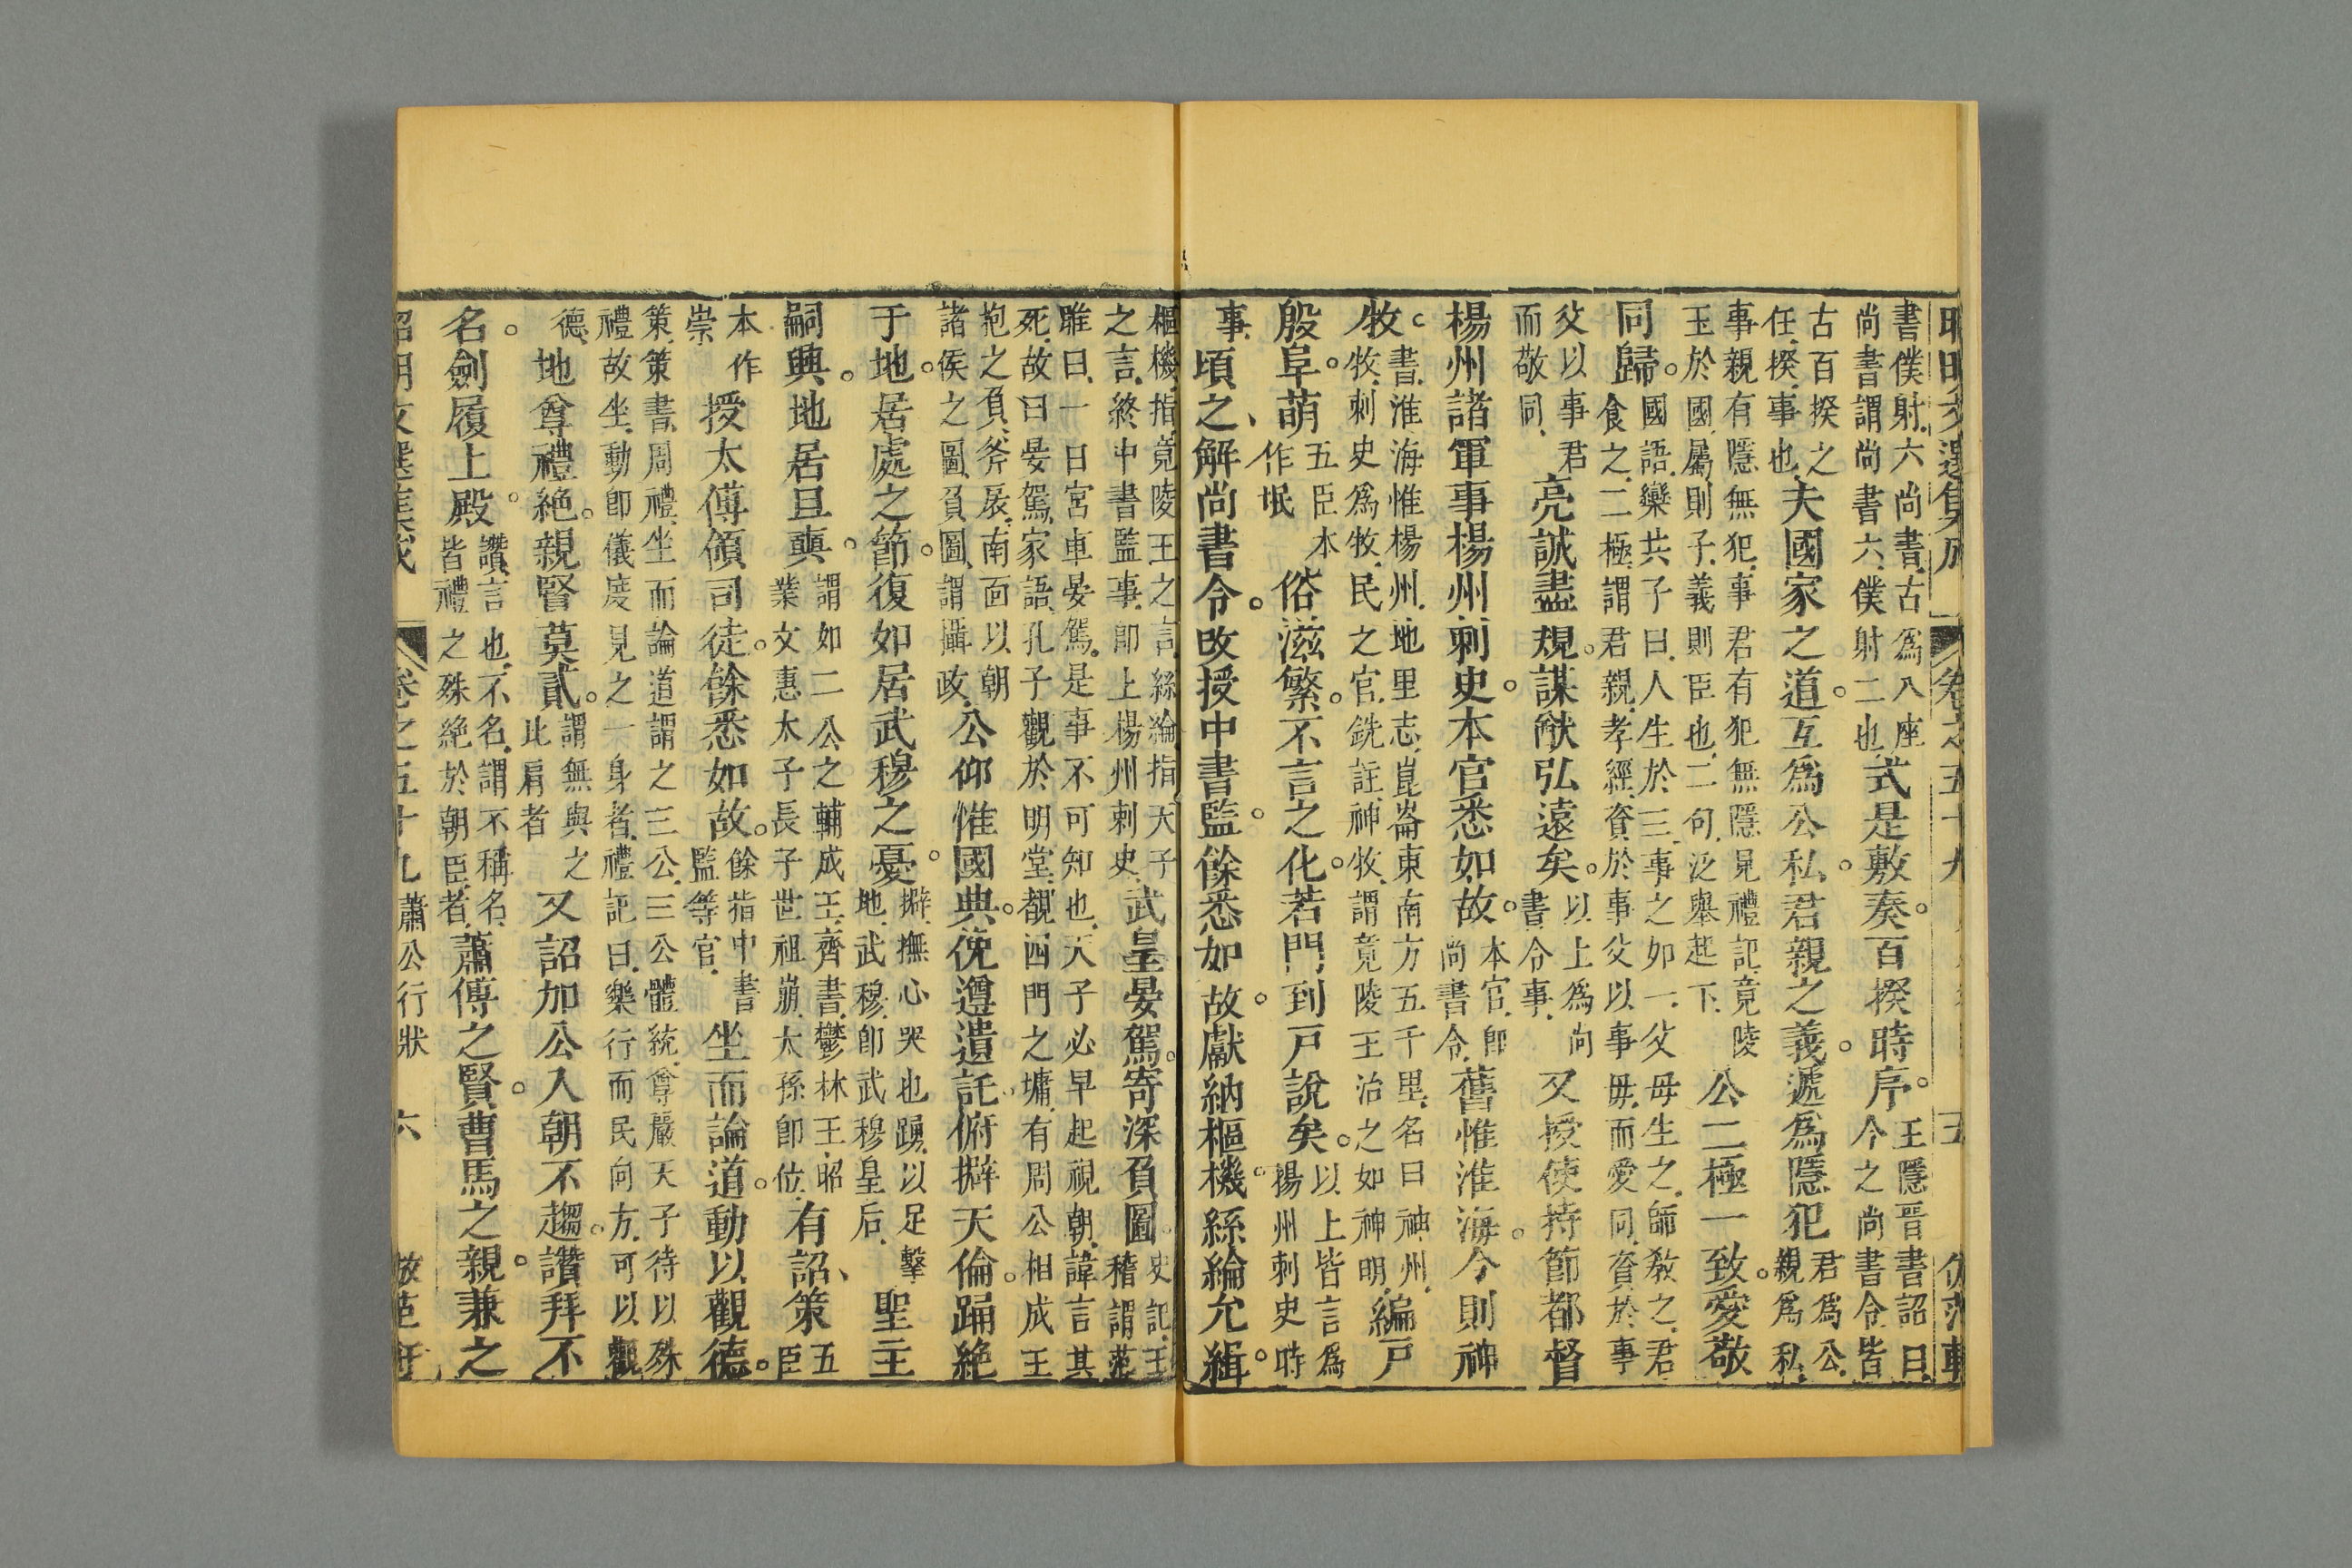 昭明文選集成 卷之五十九 五 仿范軒
書僕射六尚書古為八座尚書謂尚書六僕射二也式是敷奏。百揆時序。王隱晉書詔曰今之尚書令皆
古百揆之任揆事也夫國家之道。互為公私。君親之義。遞為隱犯君為公親為私
事親有隱無犯事君有犯無隱見禮記竟陵王於國屬則子義則臣也二句泛舉起下公二極一致。愛敬
同歸。國語欒共子曰人生於三事之如一父母生之師教之君食之二極謂君親孝經資於事父以事母而愛同資於事
父以事君而敬同亮誠盡規。謀猷弘遠矣。以上為尚書令事又授使持節都督
楊州諸軍事楊州刺史。本官悉如故。本官即尚書令舊惟淮海。今則神
牧。書淮海惟楊州地里志崑崙東南方五千里名曰神州牧刺史為牧民之官銑註神牧謂竟陵王治之如神明編戶
殷阜。萌五臣本作氓俗滋繁。不言之化。若門到戶說矣。以上皆言為揚州刺史時
事頃之、解尚書令。改授中書監。餘悉如故。獻納樞機。絲綸允緝。
樞機指竟陵王之言絲綸指天子之言終中書監事即上楊州刺史武皇晏駕。寄深負圖。史記王稽謂范
雎曰一日宮車晏駕是事不可知也天子必早起視朝諱言其死故曰晏駕家語孔子觀於明堂覩四門之墉有周公相成王
抱之負斧扆南面以朝諸侯之圖負圖謂攝政公仰惟國典。俛遵遺託。俯擗天倫。踊絕
于地。居處之節。復如居武穆之憂。擗撫心哭也踴以足擊地武穆即武穆皇后聖主
嗣興。地居旦奭。謂如二公之輔成王齊書鬱林王昭業文惠太子長子世祖崩太孫即位有詔、策五臣
本作崇授太傅領司徒。餘悉如故。餘指中書監等官坐而論道。動以觀德。
策策書周禮坐而論道謂之三公三公體統尊嚴天子待以殊禮故坐動即儀度見之一身者禮記曰樂行而民向方可以觀
德地尊禮絕。親賢莫貳。謂無與之比肩者又詔加公入朝不趨。讚拜不
名。劍履上殿。讚言也不名謂不稱名皆禮之殊絕於朝臣者蕭傅之賢。曹馬之親。兼之
昭明文選集成 卷之五十九 蕭公行狀 六